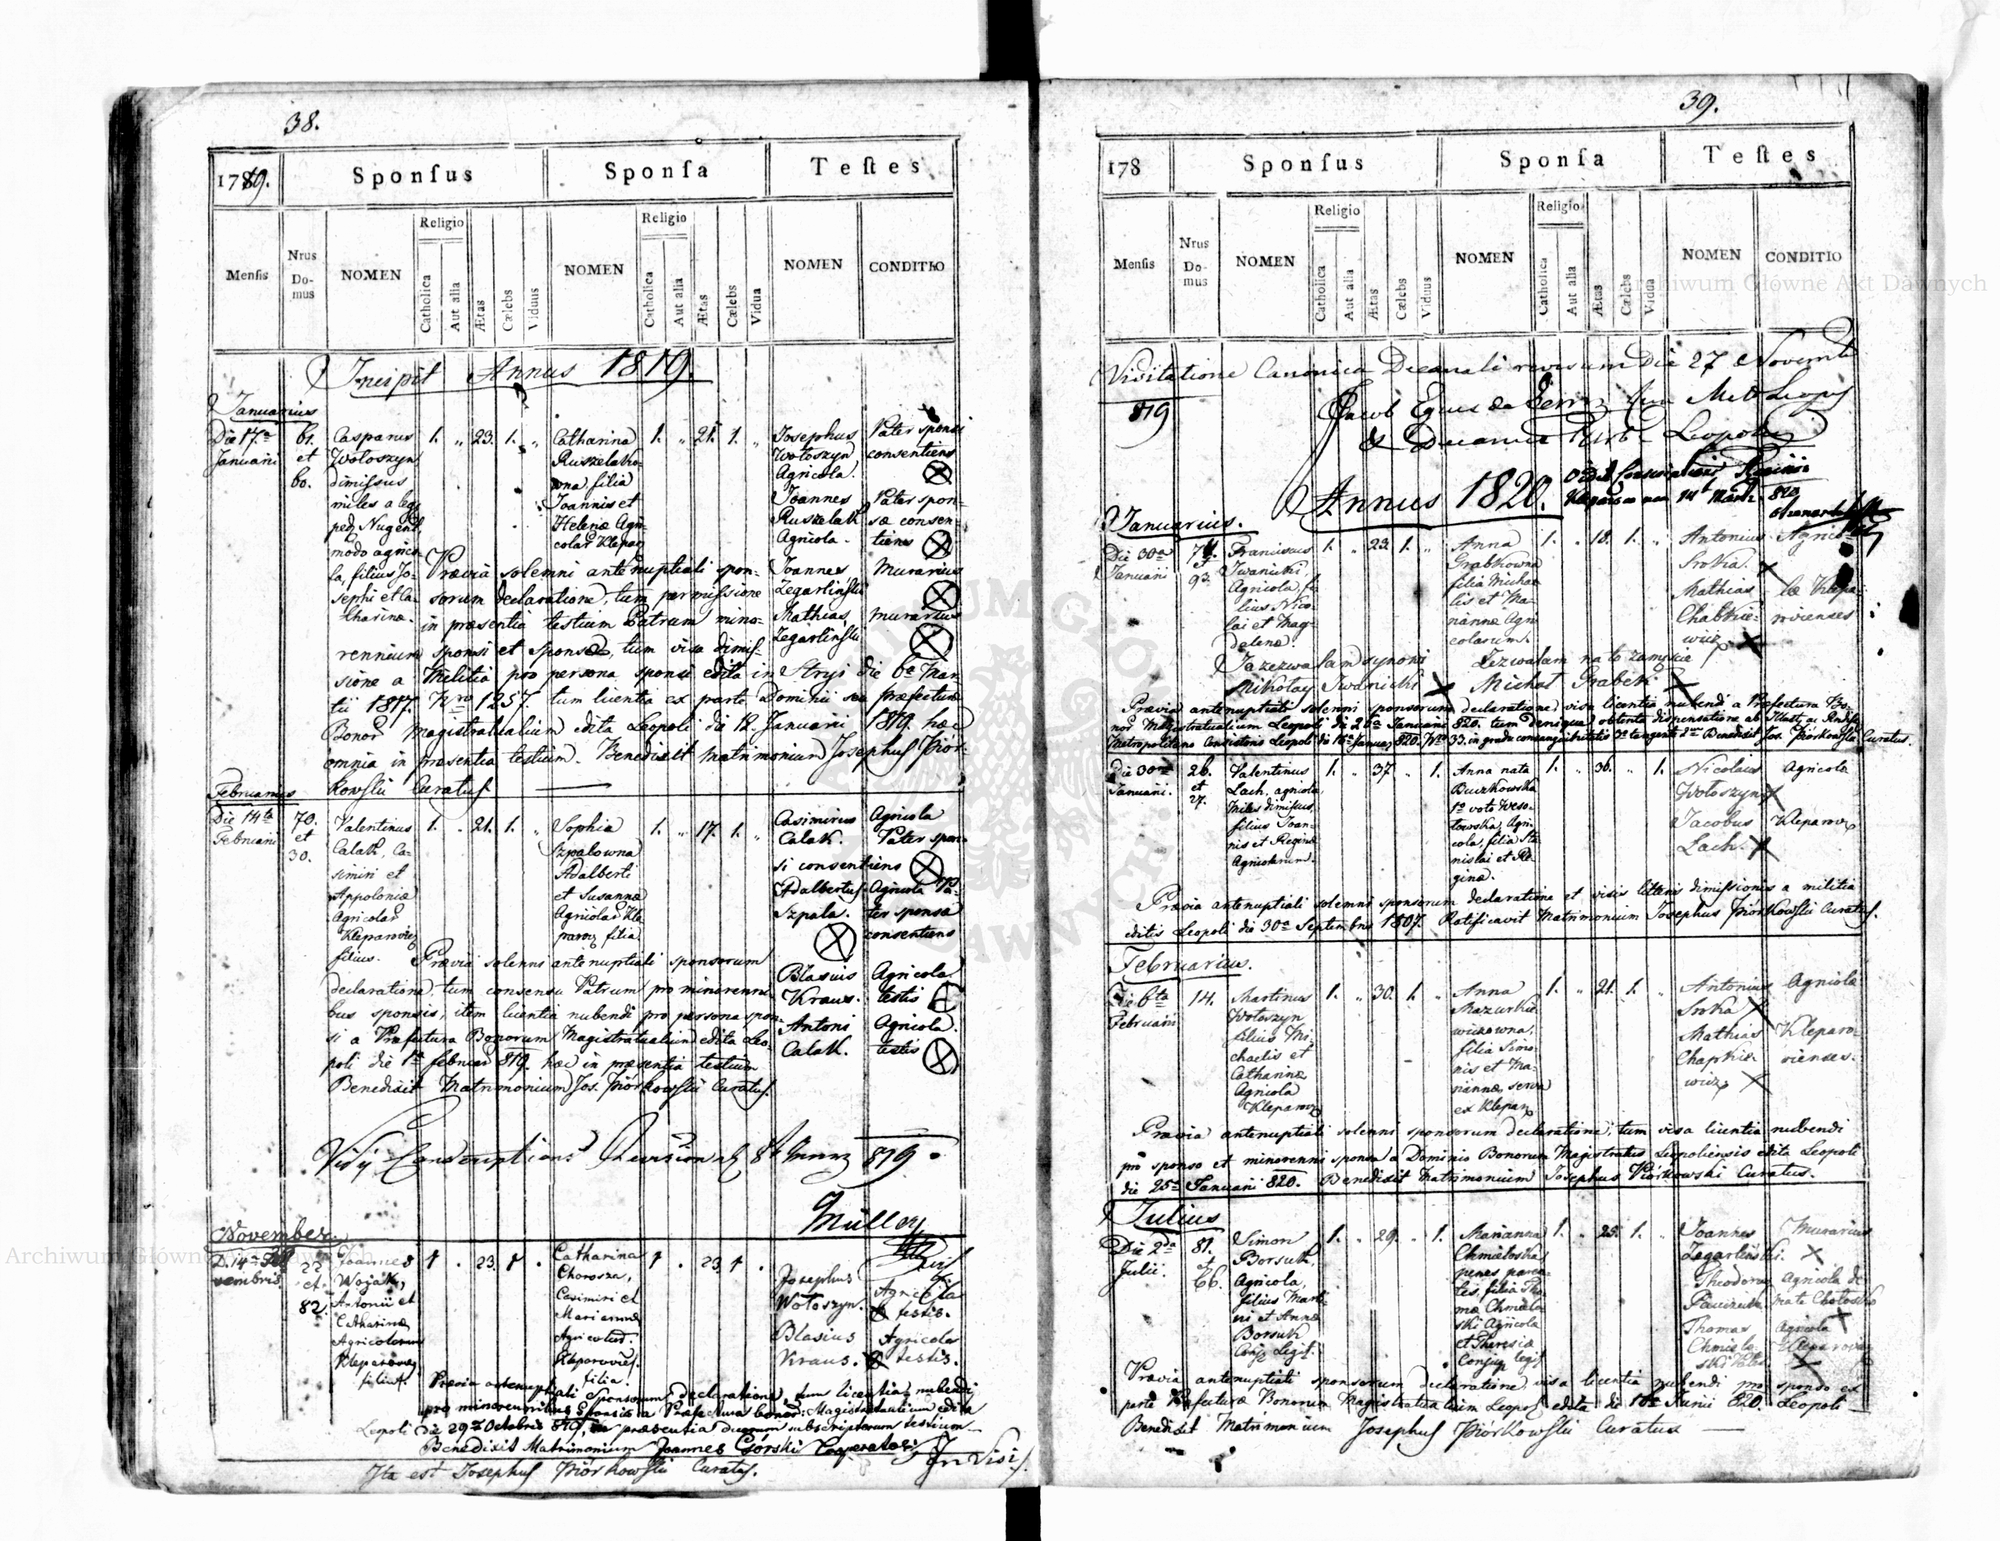 38.
1789.
Sponſus
Sponſa
Teſtes
Menſis
Nrus Domus
NOMEN
Religio
Catholica
Aut alia
Ætas
Cælebs
Viduus
NOMEN
Religio
Catholica
Aut alia
Ætas
Cælebs
Vidua
NOMEN
CONDITIO
Incipit Annus 1819.
Januarius
Die 17a
Januarii
61.
et
60.
Casparus
Wołoszyn
dimissus
miles a leg.
ped. Nugent
modo agrico-
la, filius Jo-
sephi et Ca-
tharinæ.
1. „ 23. 1. „
Catharina
filia
Joannis et
Helenæ Agri-
colar Klepar
1. „ 21. 1. „
Josephus
Wołoszyn
Agricola.
Joannes
Agricola.
Joannes
Mathias
Pater sponsi
consentiens
Pater spon-
sæ consen-
tiens
Murarius
Murarius
Prævia solemni antenuptiali spon-
sorum declaratione, tum permissione
in præsentia testium Patrum mino-
rennium sponsi et sponsæ, tum visa dimis-
sione a Militia pro persona sponsi edita in Stryi die 6a Mar-
tii 1817. Nro 1257. tum licentia ex parte Dominii seu præfecturæ
Bonor Magistratualium edita Leopoli die 12. Januarii 1819. hæc
omnia in præsentia testium. Benedixit Matrimonium Josephus Piór-
kowski Curatus
Februarius
Die 14ta
Februarii
70.
et
30.
Valentinus
Calak, Ca-
simiri et
Appoloniæ
Agricolar
Kleparovien
filius.
1. „ 21. 1. „
Sophia
Szpalowna
Adalberti
et Susannæ
Agricolar Kle
parov filia
1. „ 17. 1. „
Casimirus
Calak.
Agricola
Pater spon-
si consentiens
Adalbertus
Szpala.
Agricola Pa-
ter sponsæ
consentiens
Blasius
Kraus.
Agricola
testis
Antoni
Calak.
Agricola.
testis
Prævia solenni antenuptiali sponsorum
declaratione, tum consensu Patrum pro minorenni-
bus sponsis, item licentia nubendi pro persona spon-
si a Præfectura Bonorum Magistratualium edita Leo-
poli die 1a februar 819. hæc in præsentia testium
Benedixit Matrimonium Jos. Piórkowski Curatus.
819.
Müller
November
D. 14a
vembris
22
et
82.
Joannes
Wojak,
Antonii et
Catharinæ
Agricolarum
Kleparovien
filius.
1 . 23. 1 .
Catharina
Chorosza,
Casimiri et
Mariannæ
Agricolar.
Kleparovien.
filia.
1 . 23. 1 .
Josephus
Wołoszyn.
Agricola
testis.
Blasius
Kraus.
Agricola
testis.
Prævia antenuptiali Sponsorum declaratione, tum licentia nubendi
pro minorennibus Sponsis a Præfectura bonor: Magistratualium edita
Leopoli die 29a Octobris 819, in præsentia duorum subscriptorum testium
Benedixit Matrimonium Joannes Górski Cooperator.
Ita est Josephus Piórkowski Curatus.
39.
178
Sponſus
Sponſa
Teſtes
Menſis
Nrus Domus
NOMEN
Religio
Catholica
Aut alia
Ætas
Cælebs
Viduus
NOMEN
Religio
Catholica
Aut alia
Ætas
Cælebs
Vidua
NOMEN
CONDITIO
Visitatione Canonica Decanali revisum Die 27 Novemb
819
Annus 1820.
Januarius.
Die 30a
Januarii
74.
et
93.
Franciscus
Iwanicki
Agricola, fi-
lius Nico-
lai et Mag-
dalenæ.
1. „ 23. 1. „
Anna
Grabkowna
filia Micha-
lis et Ma-
riannæ Agri
colarum.
1. „ 18. 1. „
Antonius
Srokia
Mathias
wicz
Agricolæ Klepa-
rovienses
Mikołay Iwanicki
Zezwalam na to zamęście
Michał Grabek
Prævia antenuptiali solenni sponsorum declaratione, visa licentia nubendi a Præfectura Bo-
nor Magistratualium Leopoli die 26a Januarii 820. tum denique obtenta dispensatione ab
Metropolitano Consistorio Leopoli die 18a Januar 820. Nro 33. in gradu consanguinitatis 3o tangente 2um Benedixit Jos. Piórkowski Curatus.
Die 30a
Januarii.
26.
et
27.
Valentinus
Lach, agricola
Miles dimissus,
filius Joan-
nis et Reginæ
Agricolarum.
1. „ 37 „ 1.
Anna nata
Buczkowska
1o voto Weso-
łowska, Agri-
cola, filia Sta-
nislai et Re-
ginæ.
1. „ 36. „ 1.
Nicolaus
Wołoszyn
Jacobus
Lach.
Agricola
Kleparov
Prævia antenuptiali solemni sponsorum declaratione et visis litteris dimissionis a militia
editis Leopoli die 30a Septembris 1807. Ratificavit Matrimonium Josephus Piórkowski Curatus.
Februarius.
Die 6ta
Februarii
14.
Martinus
Wołoszyn
filius Mi-
chaelis et
Catharinæ
Agricola
Kleparov
1. „ 30. 1. „
Anna
Mazurkie-
wiczowna,
filia Simo-
nis et Ma-
riannæ, serva
ex Klepar
1. „ 21. 1. „
Antonius
Sroka
Mathias
Chapkie-
wicz
Agricolæ
Kleparo-
vienses.
Prævia antenuptiali solenni sponsorum declaratione, tum visa licentia nubendi
pro sponso et minorenni sponsa a Dominio Bonorum Magistratus Leopoliensis edita Leopoli
die 25a Januarii 820. Benedixit Matrimonium Josephus Piórkowski Curatus.
Julius
Die 2da
Julii.
81.
et
66.
Simon
Borsuk,
Agricola,
filius Marti-
ni et Annæ
Borsuk
Conj. Legit.
1. „ 29. „ 1.
Marianna
Chmielowska
penes paren-
tes, filia Tho-
mæ Chmiele-
ski Agricola
et Theresiæ
Conjug legit
1. „ 25. 1. „
Joannes
Zegarliński.
Murarius
Theodorus
Agricola de
Thomas
Chmiele-
ski
Agricola
Kleparov
Prævia antenuptiali sponsorum declaratione, visa licentia nubendi pro sponso ex
parte Præfecturæ Bonorum Magistratualium Leopol edita die 18a Junii 820. Leopoli
Benedixit Matrimonium Josephus Piórkowski Curatus
Archiwum Główne Akt Dawnych